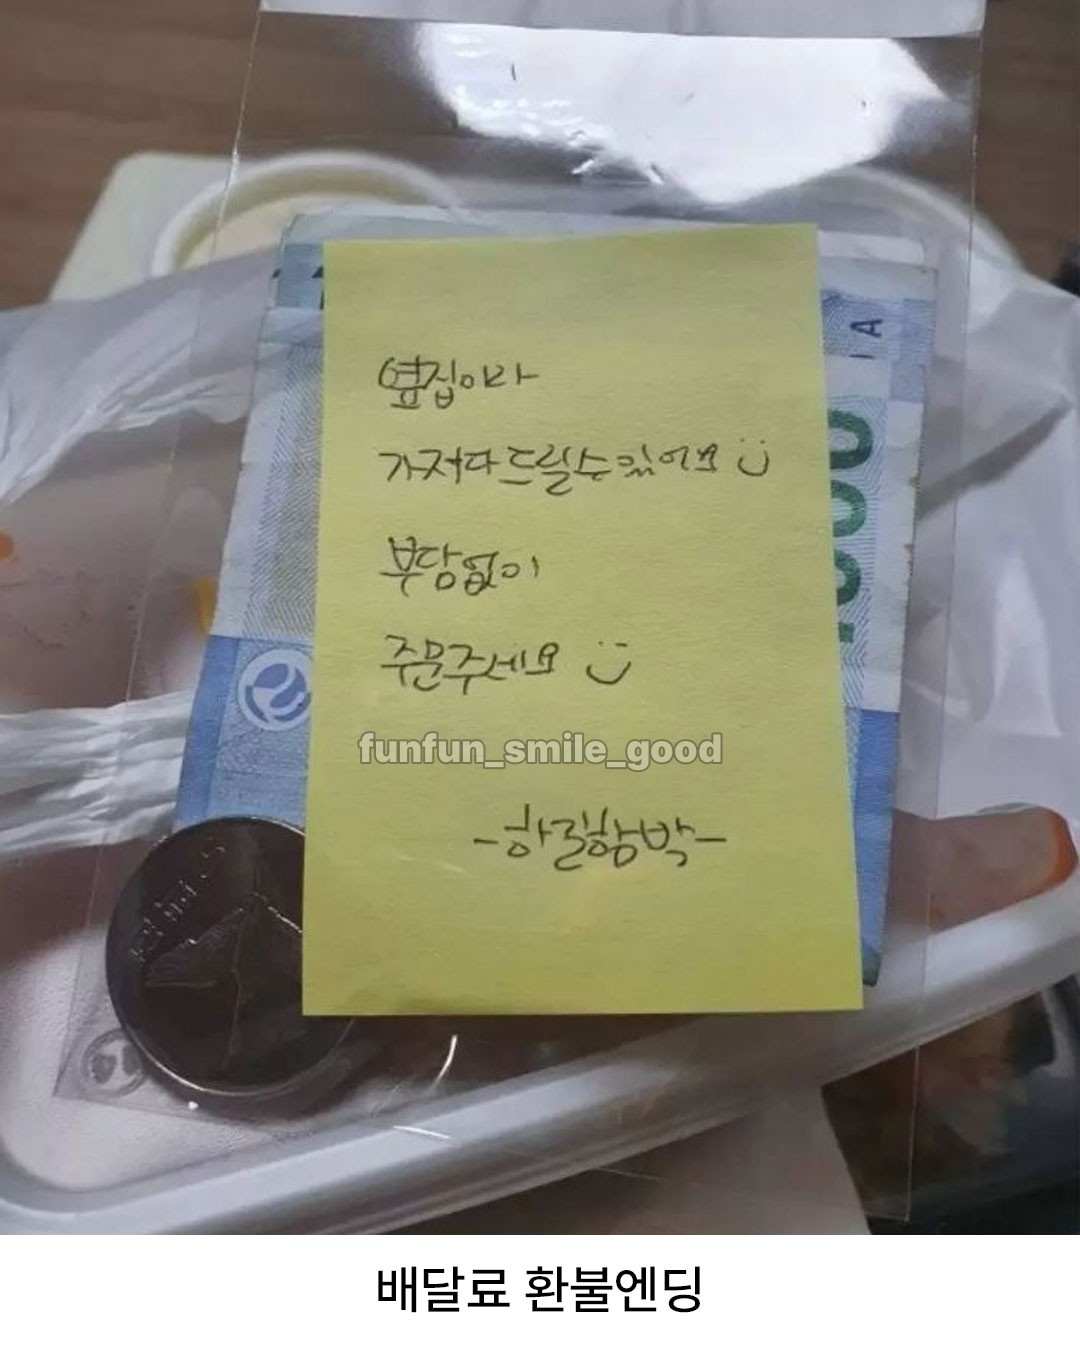 옆집이라
가져다 드릴수 있어요
부담없이
주문주세요
funfun_smile_good
000
배달료 환불엔딩